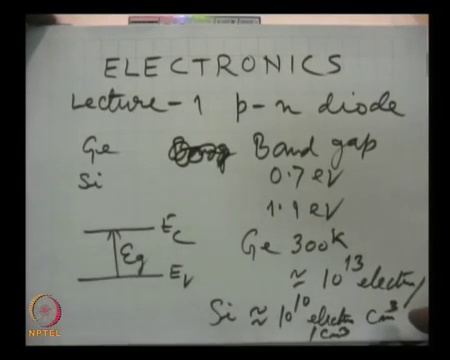 ELECTRONICS
Lecture-1 p-n diode
Ge Band gap
Si 0.7 eV
1.1 eV
Ge 300K
Ec
Eg
Ev
≈ 10^13 electron/cm^3
Si ≈ 10^10 electrn/cm^3
NPTEL